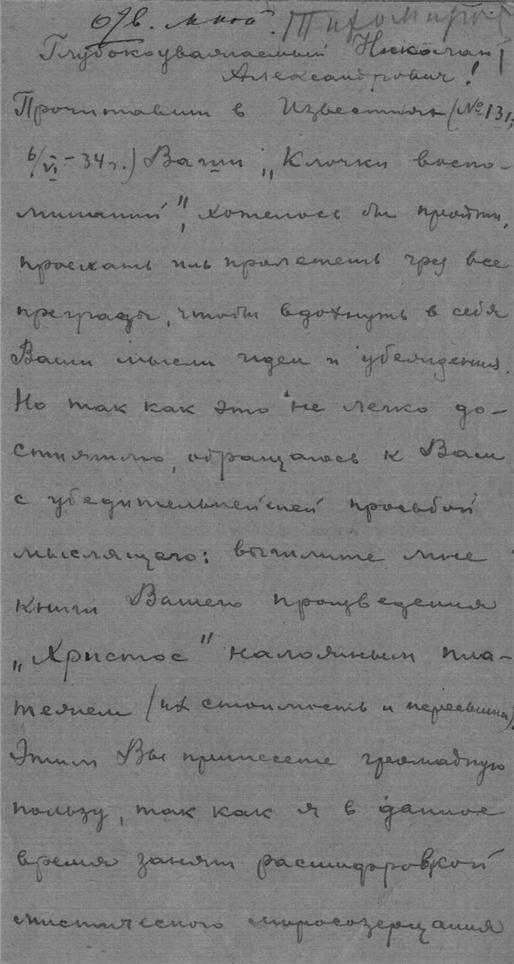 Отв. мной. Тихомиров
Глубокоуважаемый Николай
Александрович!
Прочитавши в Известиях (№ 131,
6/VI – 34 г.) Ваши „Клочки воспо-
минаний", хотелось бы пройти,
проехать иль пролететь чрез все
преграды, чтобы вдохнуть в себя
Ваши мысли идеи и убеждения.
Но так как это не легко до-
стижимо, обращаюсь к Вам
с убедительнейшей просьбой
мыслящего: вышлите мне
книги Вашего произведения
„Христос" наложным пла-
тежем (их стоимость и пересылка).
Этим Вы принесете громадную
пользу, так как я в данное
время занят расшифровкой
мистического миросозерцания